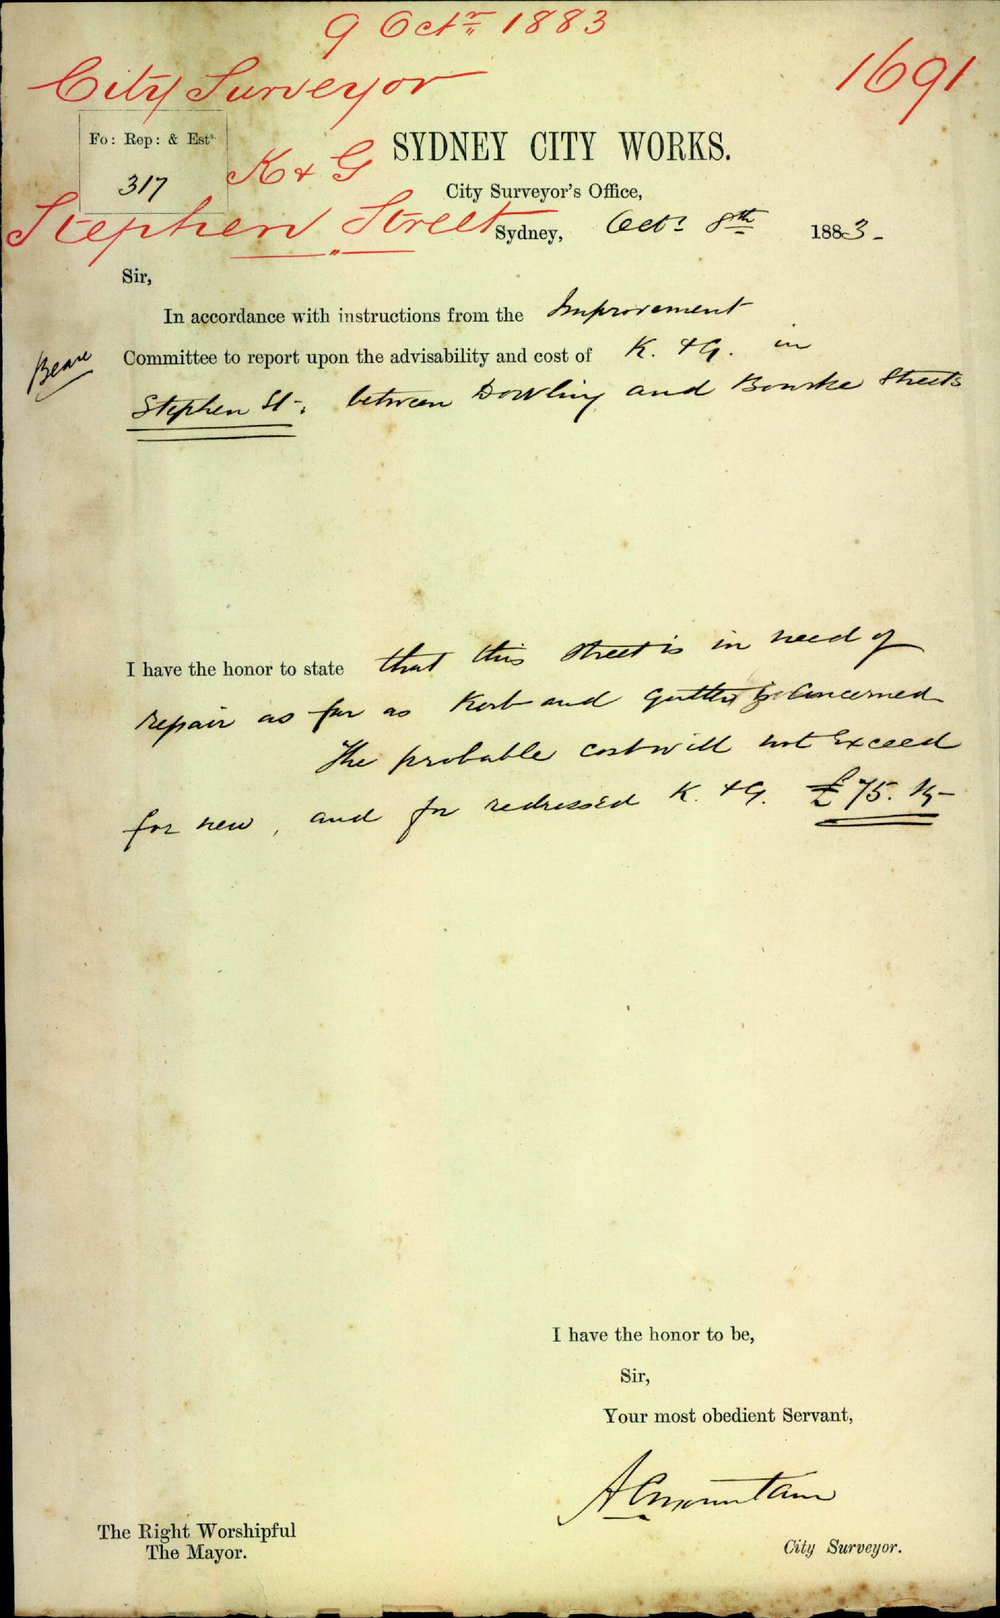 9 Octr 1883
City Surveyor
1691
Fo: Rep: & Ests.
317
K & G
SYDNEY CITY WORKS.
City Surveyor's Office,
Stephen Street
Sydney, Octr 8th 1883-
Sir,
In accordance with instructions from the Improvement
Committee to report upon the advisability and cost of K. & G. in
Stephen St., between Dowling and Bourke Streets
I have the honor to state that this street is in need of
repair as far as Kerb and Gutter is Concerned
The probable cost will not exceed
for new, and for redressed K. & G. £75.
I have the honor to be,
Sir,
Your most obedient Servant,
A C Mountain
City Surveyor.
The Right Worshipful
The Mayor.